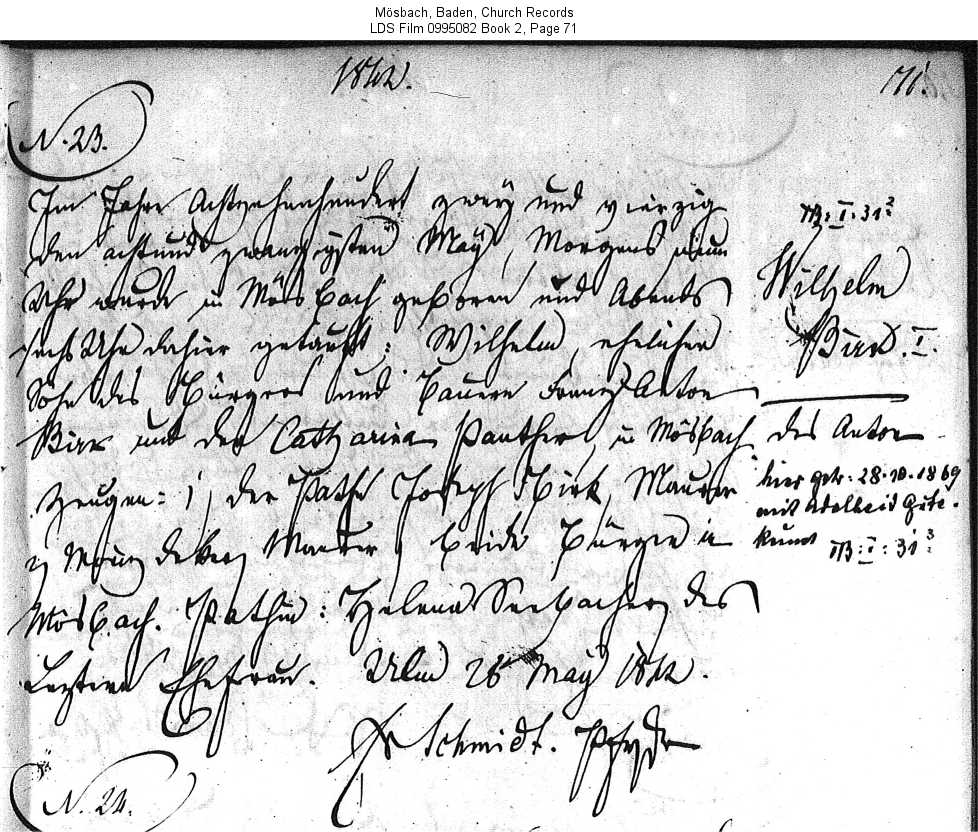 Mösbach, Baden, Church Records
LDS Film 0995082 Book 2, Page 71
1842.
71.
N. 23.
Im Jahre Achtzehnhundert zwey und vierzig
den achtundzwanzigsten May, Morgens neun
Uhr wurde in Mösbach geboren und Abends
sechs Uhr dahier getauft: Wilhelm, ehelicher
Sohn des Bürgers und Bauern Franz Anton
Birk und der Catharina Panther in Mösbach
Zeugen: 1, der Pathe Joseph Birk, Maurer
2, beide Bürger in
Mösbach. Pathin: Helena Seebacher, des
Leztern Ehefrau. Ulm 28 May 1842.
Schmidt. Pfvdr
FB: I: 31²
Wilhelm
Birk. I.
des Anton
hier getr: 28.10.1869
mit Adelheid Gute-
kunst FB: I: 31³
N. 24.